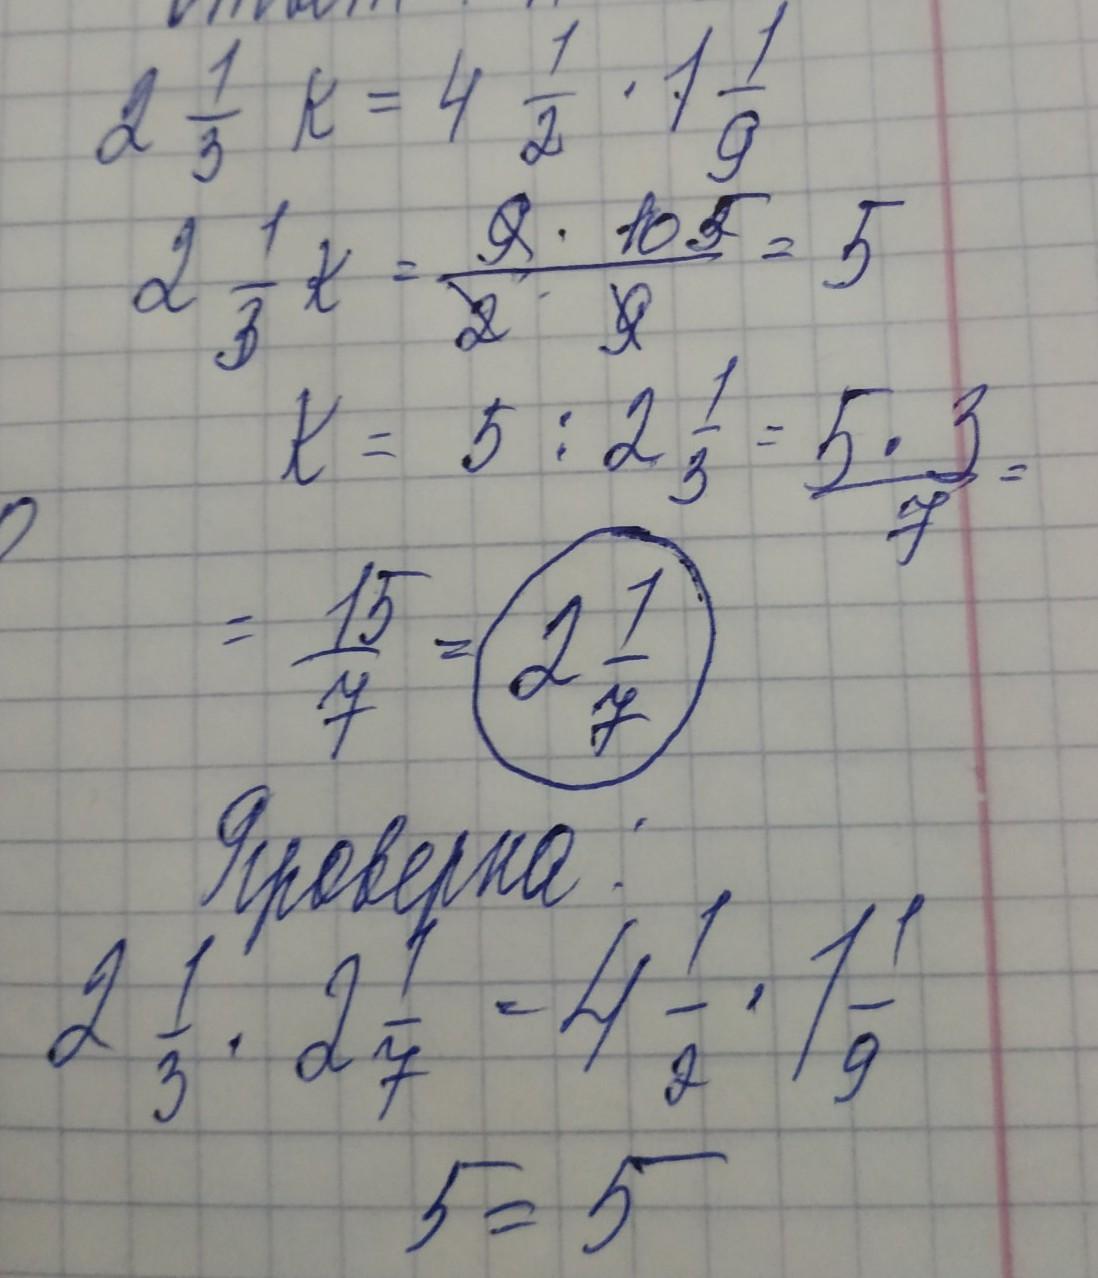 2 1/3 k = 4 1/2 · 1 1/9
2 1/3 k = 9 · 10 5 / 2 · 9 = 5
k = 5 : 2 1/3 = 5 · 3 / 7 =
= 15/7 = 2 1/7
Проверка:
2 1/3 · 2 1/7 = 4 1/2 · 1 1/9
5 = 5